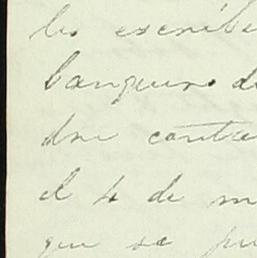 les escribe
banquero d
dne contra
el 4 de m
que se pu